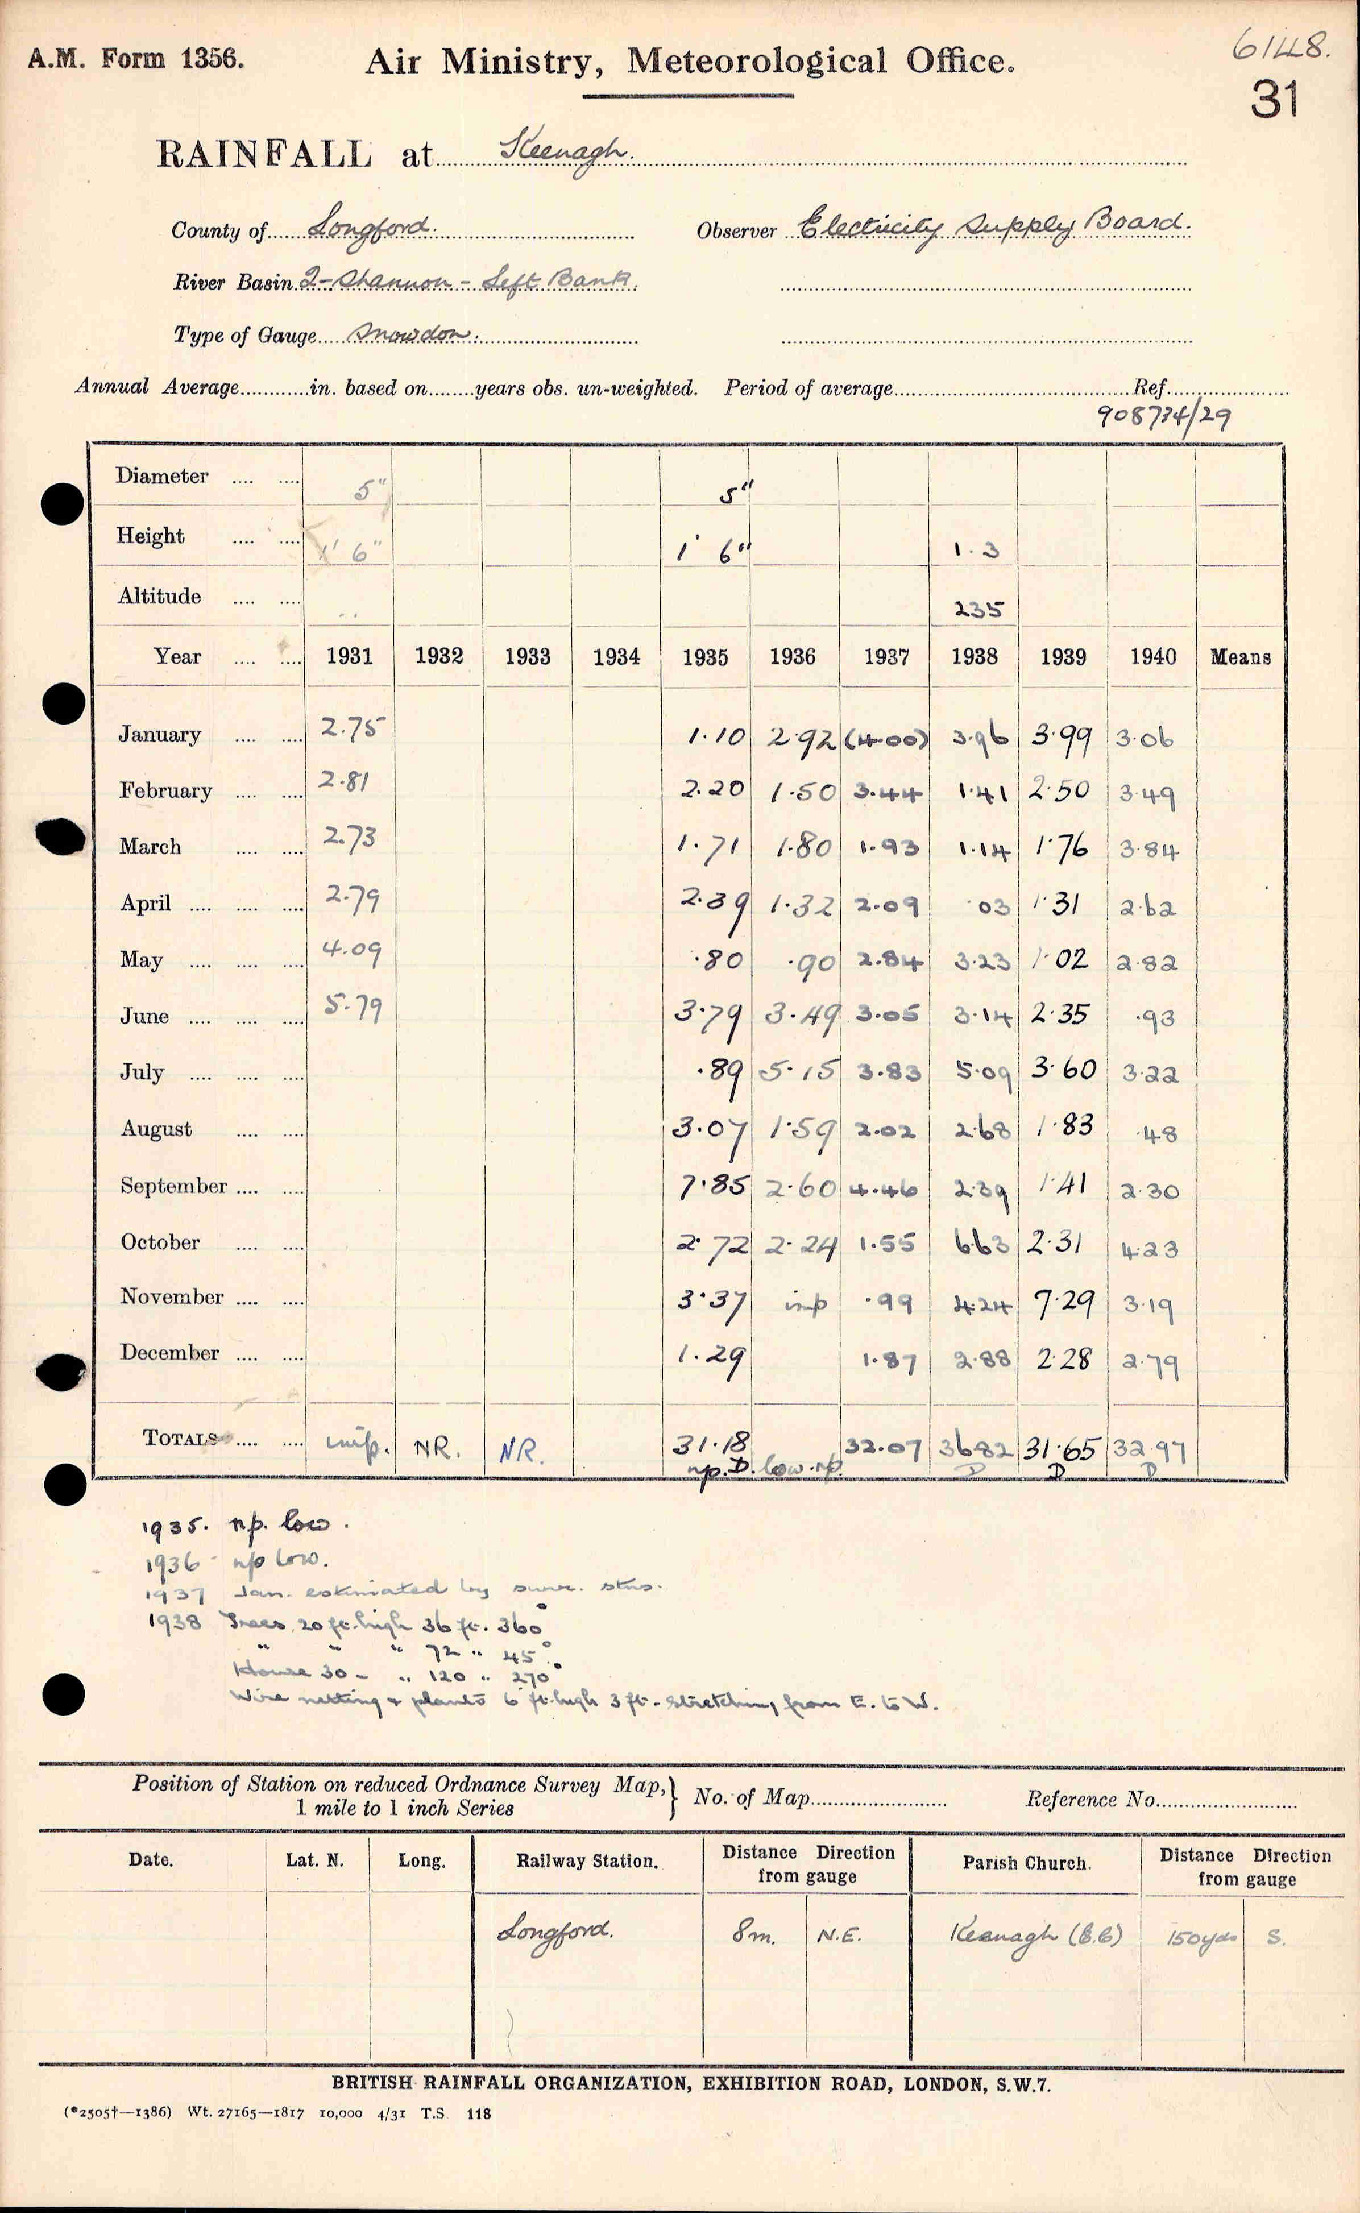 A.M. Form 1356. Air Ministry, Meteorological Office. 6148.
31
RAINFALL at Keenagh.
County of Longford. Observer Electricity Supply Board.
River Basin 2-Shannon - Left Bank.
Type of Gauge Snowdon.
Annual Average in. based on years obs. un-weighted. Period of average Ref.
908734/29
Diameter 5" 5"
Height 1' 6" 1' 6" 1.3
Altitude 235
Year 1931 1932 1933 1934 1935 1936 1937 1938 1939 1940 Means
January 2.75 1.10 2.92 (4.00) 3.96 3.99 3.06
February 2.81 2.20 1.50 3.44 1.41 2.50 3.49
March 2.73 1.71 1.80 1.93 1.14 1.76 3.84
April 2.79 2.39 1.32 2.09 .03 1.31 2.62
May 4.09 .80 .90 2.84 3.23 1.02 2.82
June 5.79 3.79 3.49 3.05 3.14 2.35 .93
July .89 5.15 3.83 5.09 3.60 3.22
August 3.07 1.59 2.02 2.68 1.83 .48
September 7.85 2.60 4.46 2.39 1.41 2.30
October 2.72 2.24 1.55 6.63 2.31 4.23
November 3.37 inp .99 4.24 7.29 3.19
December 1.29 1.87 2.88 2.28 2.79
TOTALS imp. NR. NR. 31.18 32.07 36.82 31.65 32.97
np. D. low np. D D D
1935. np. low.
1936 - np low.
1937 Jan. estimated by surr. stns.
1938 Trees 20 ft. high 36 ft. 360°
" " " 72 " 45°
House 30 - " 120 " 270°
Wire netting & plants 6 ft. high 3 ft. - stretching from E. to W.
Position of Station on reduced Ordnance Survey Map, } No. of Map Reference No.
1 mile to 1 inch Series
Date. Lat. N. Long. Railway Station. Distance Direction from gauge Parish Church. Distance Direction from gauge
Longford. 8m. N.E. Keenagh 150yds S.
BRITISH RAINFALL ORGANIZATION, EXHIBITION ROAD, LONDON, S.W.7.
(*2505†—1386) Wt. 27165—1817 10,000 4/31 T.S. 118